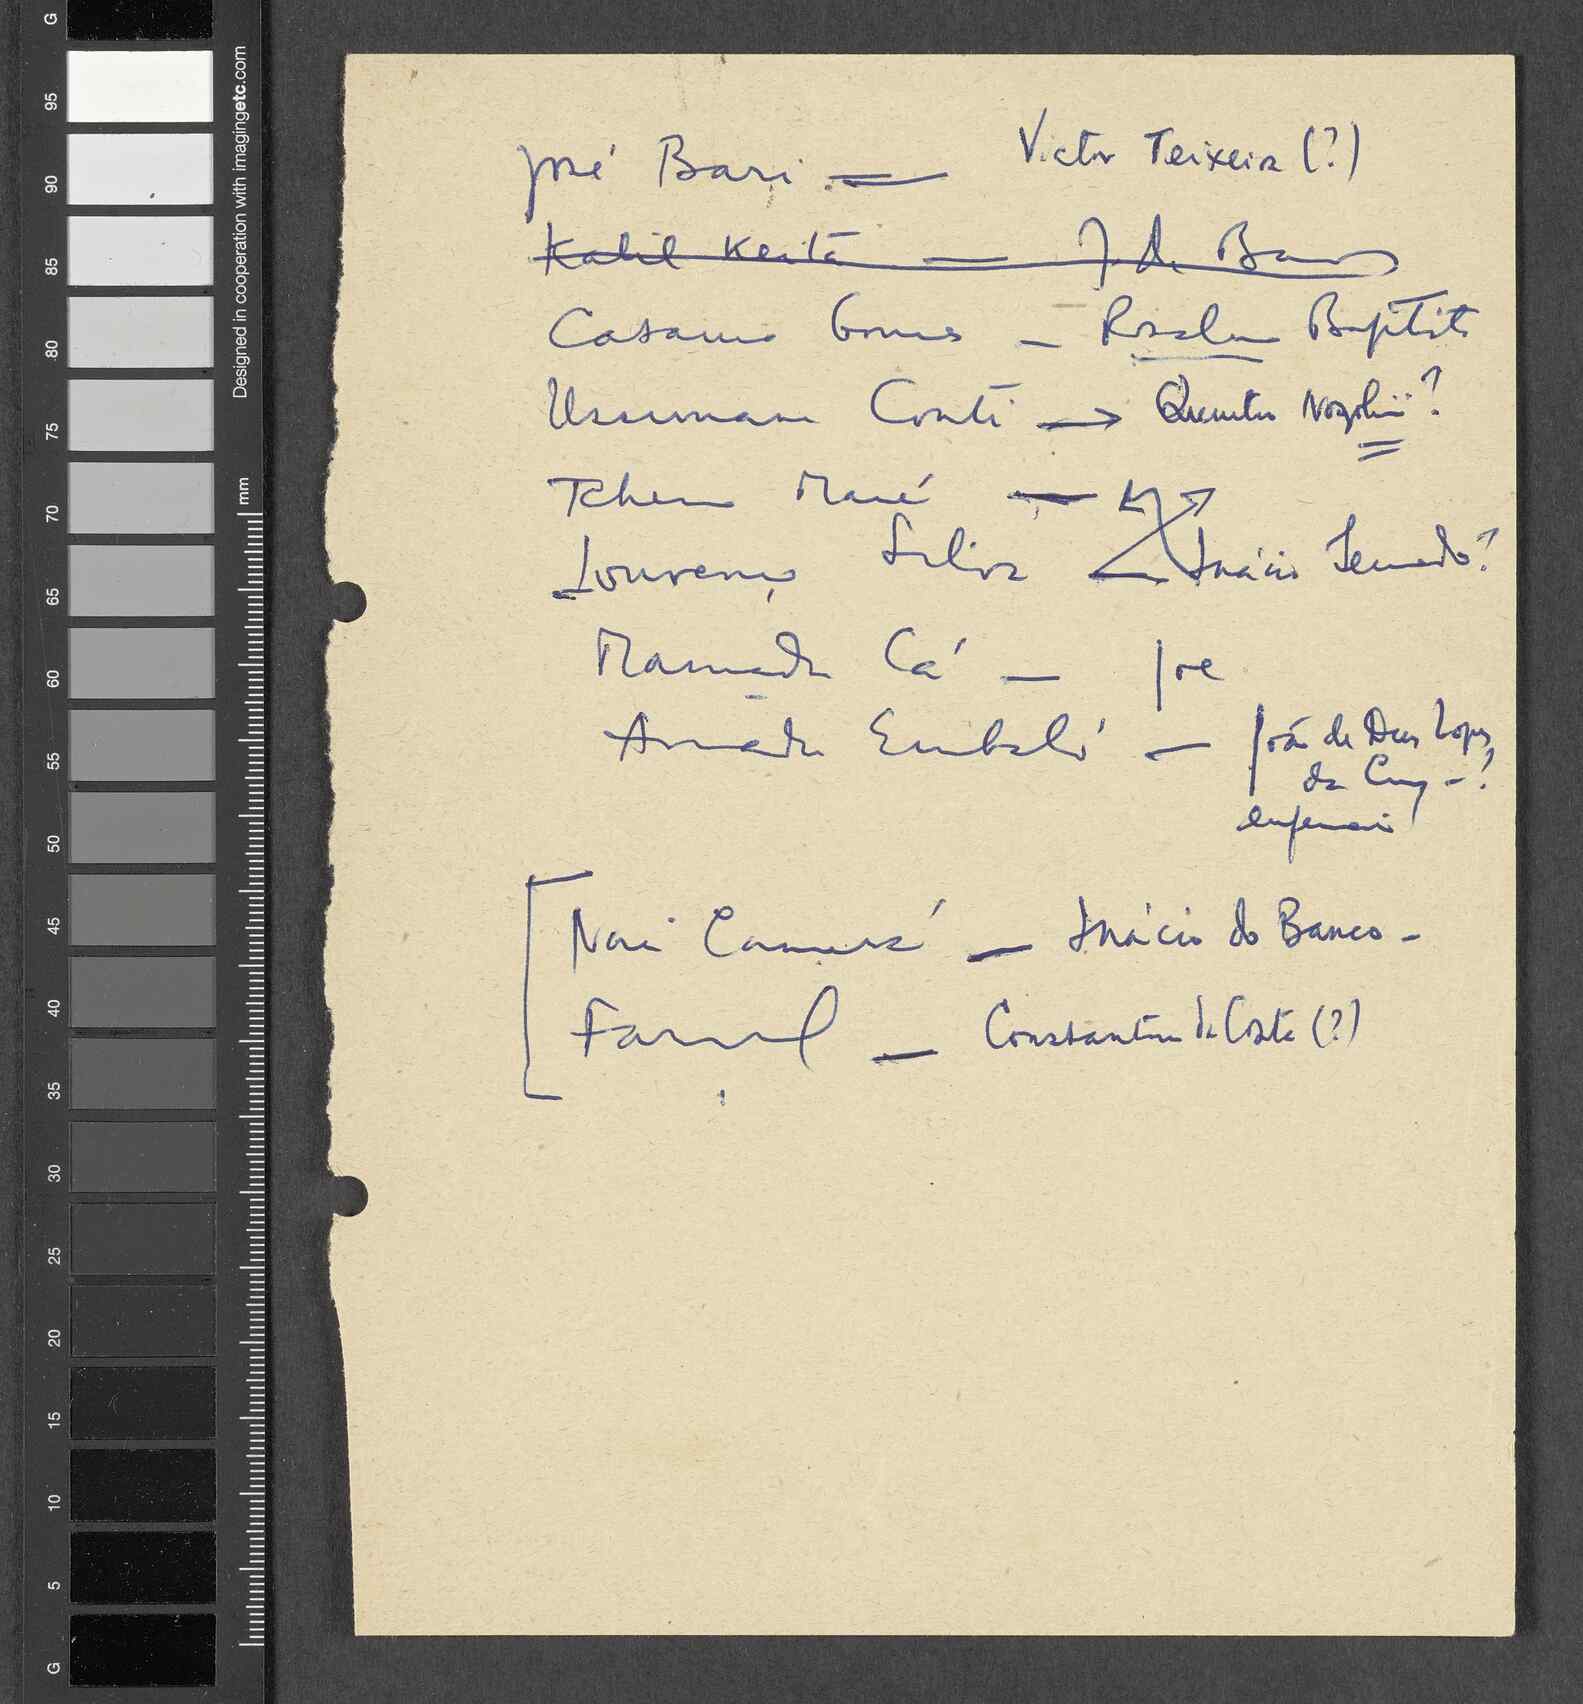 José Bari — Victor Teixeira (?)
Kalil Keitã — J. de Barros
Casamo Gomes — Baptista
Ussumane Conté → Quintino Nozolini ?
Mané —
Lourenço Silva — Inácio Semedo ?
Mamadu Cá —
Amadu Embaló — João de Deus Lopes
da Cruz - ?
enfermeiro
Nai Camará — Inácio do Banco -
— Constantino da Costa (?)
G
95
90
85
80
75
70
65
60
55
50
45
40
35
30
25
20
15
10
5
G
mm
Designed in cooperation with imagingetc.com